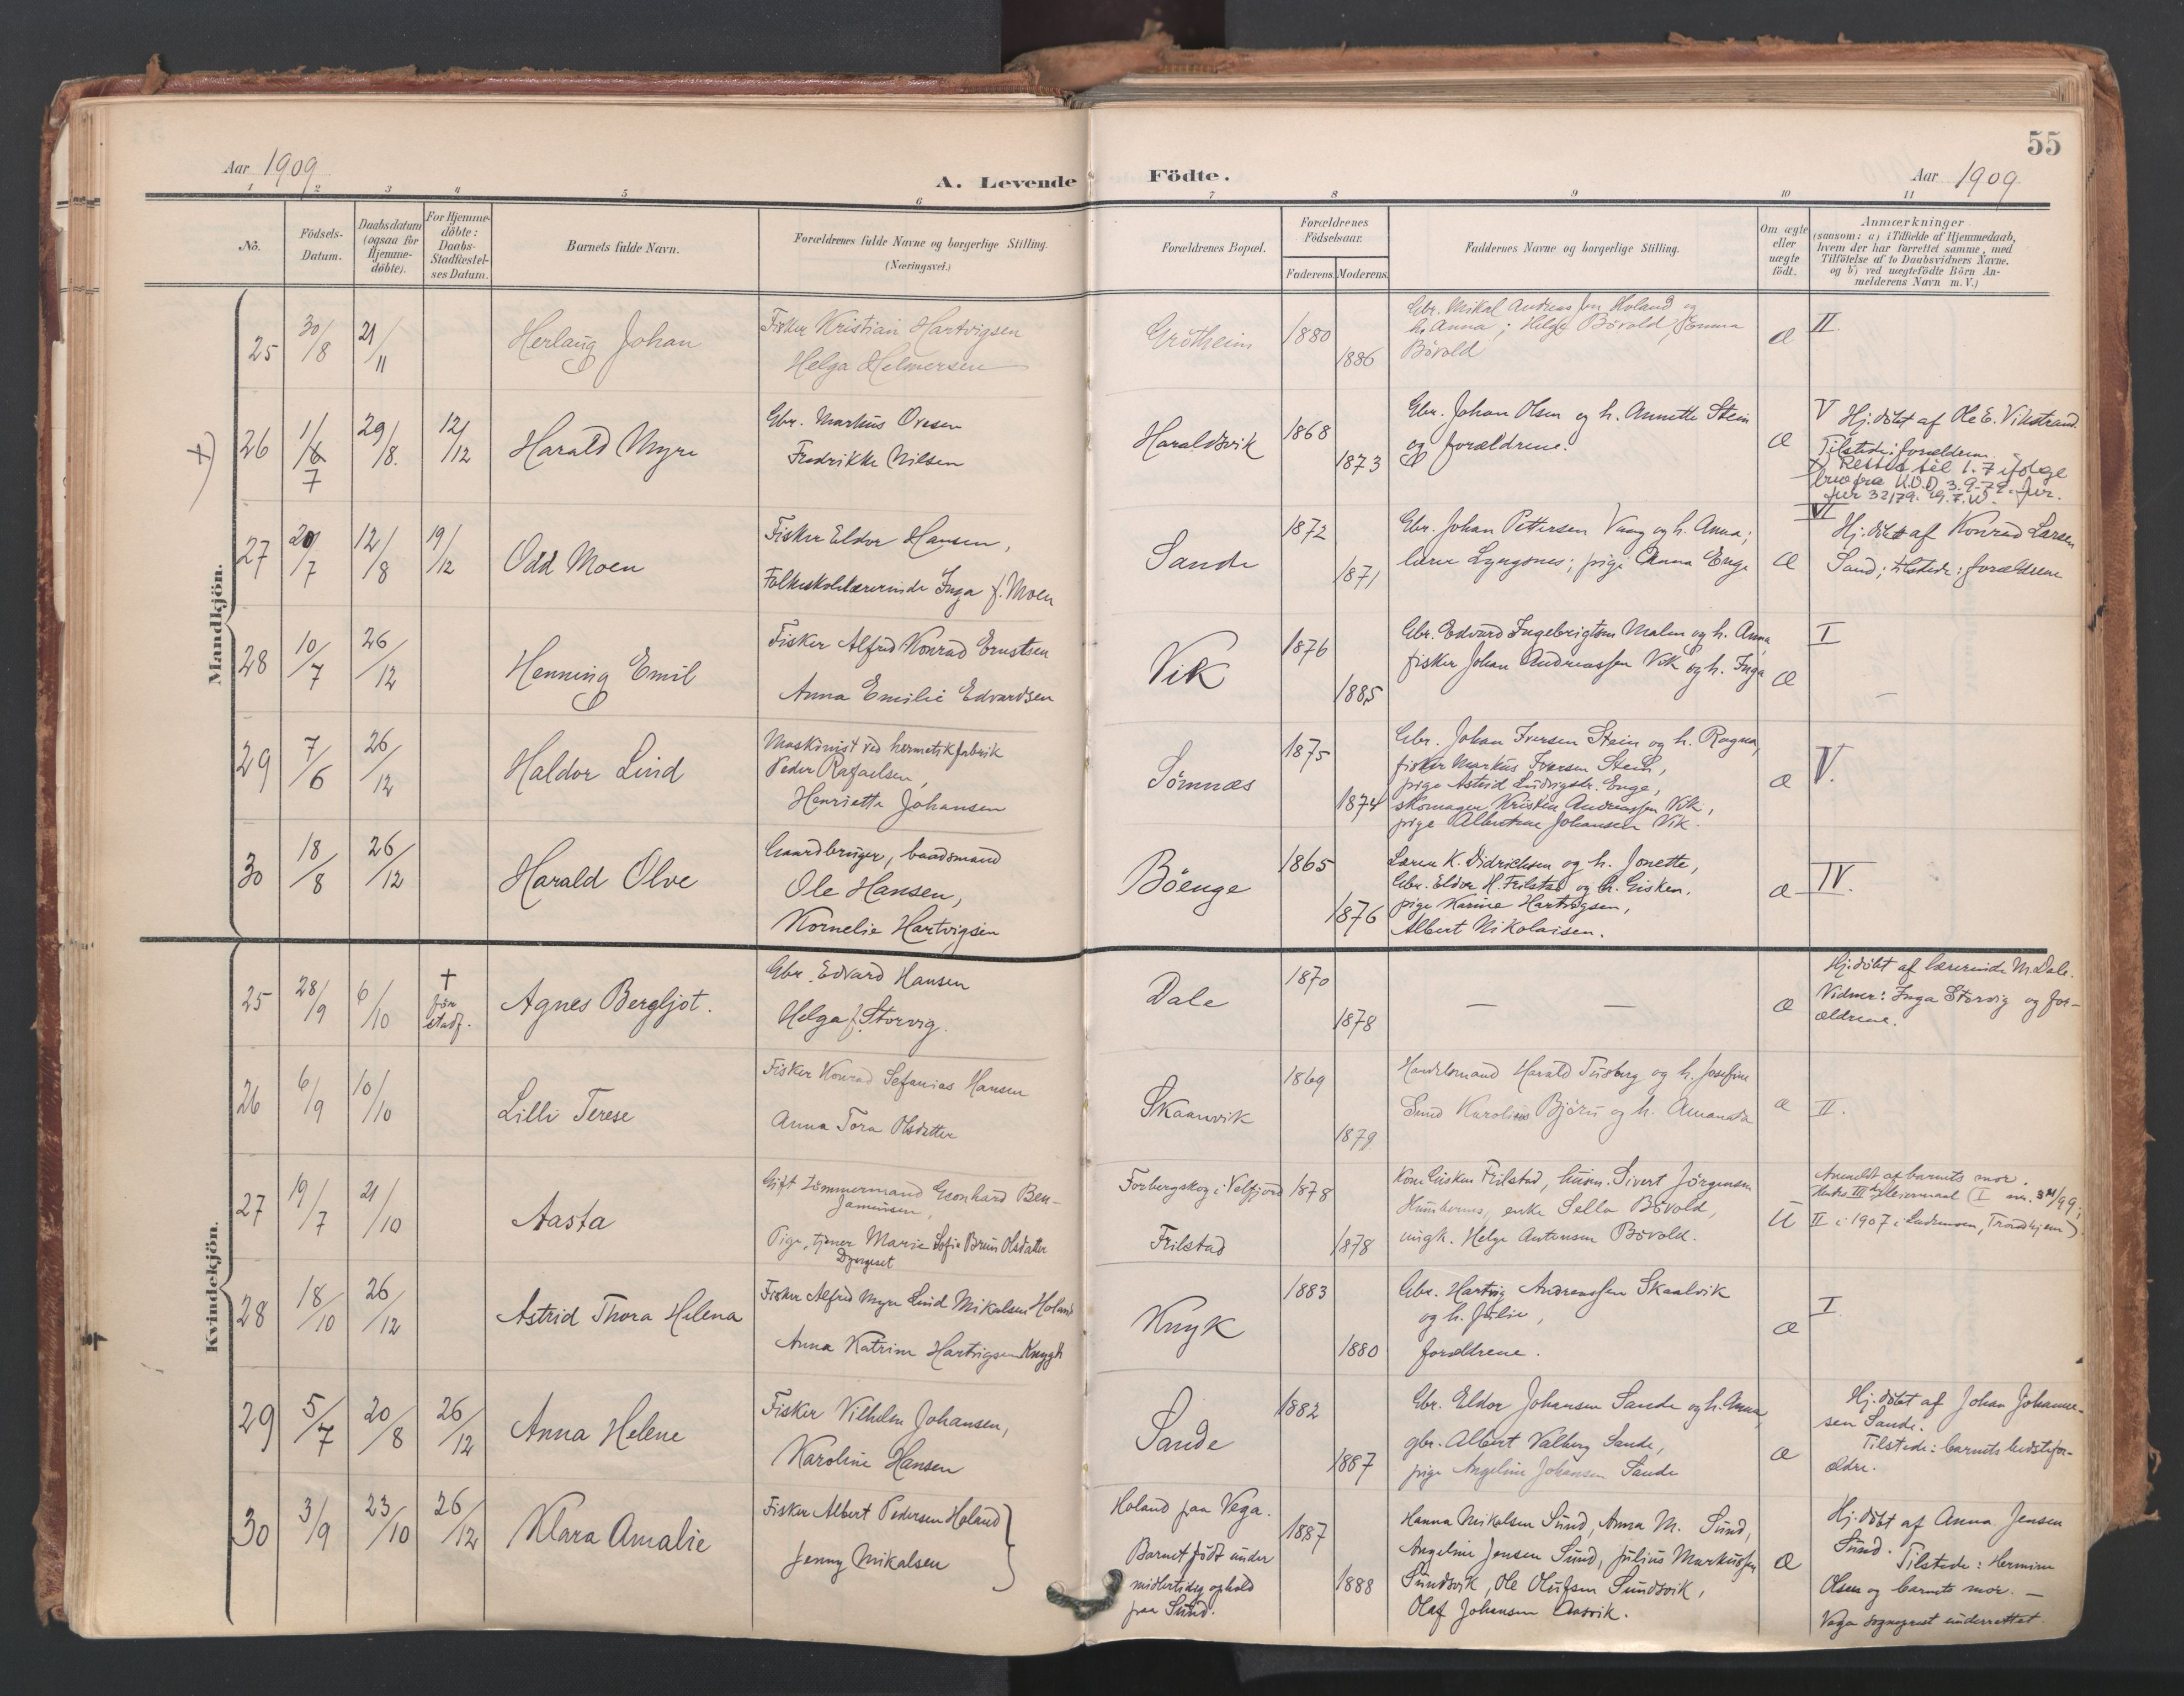 55
Aar 1909
A. Levende Födte.
Aar 1909
1 2 3 4 5 6 7 8 9 10 11
Nö.
Födsels-Datum.
Daabsdatum (ogsaa for Hjemme-döbte).
For Hjemme-döbte: Daabs-Stadfæstel-ses Datum.
Barnets fulde Navn.
Forældrenes fulde Navne og borgerlige Stilling. (Næringsvei.)
Forældrenes Bopæl.
Forældrenes Födselsaar.
Faderens. Moderens.
Faddernes Navne og borgerlige Stilling.
Om ægte eller uægte födt.
Anmærkninger
(saasom: a) i Tilfælde af Hjemmedaab,
hvem der har forrettet samme, med
Tilföielse af to Daabsvidners Navne.
og b) ved uægtefödte Börn An-
melderens Navn m. V.)
Mandkjön.
25 30/8 21/11 Herlaug Johan
Fisker Kristian Hartvigsen
Helga Helmersen
Grötheim 1880 1886
Gbr. Mikal Andreas Holand og
h. Anna; Helge Bövold, Emma
Bövold
Æ II.
+) 26 1/6 7 29/8. 12/12 Harald Myre
Gbr. Markus Ovesen
Fredrikke Nilsen
Haraldsvik 1868 1873
Gbr. Johan Olsen og h. Annette Stein
og forældrene.
Æ V Hj. döbt af Ole E. Vikstrand.
Tilstede: forældrene.
+) Rettet til 1.7 ifölge
brev fra K.O.D. 3.9-79. Jnr.
27 20/7 12/8 19/12 Odd Moen
Fisker Eldor Hansen,
Folkeskolelærerinde Inga f. Moen
Sande 1872 1871
Gbr. Johan Pettersen Vaag og h. Anna;
lærer Lyngsnes; pige Anna Enge
Æ VI Hj. döbt af Konrad Larsen
Sand; tilstede: forældrene
28 10/7 26/12 Henning Emil
Fisker Alfred Konrad Ernstsen
Anna Emilie Edvardsen
Vik 1876 1885
Gbr. Edvard Ingebrigtsen Malm og h. Anna,
fisker Johan Andreassen Vik og h. Inga
Æ I
29 7/6 26/12 Haldor Lind
Maskinist ved hermetikfabrik
Peder Rafaelsen,
Henriette Johansen
Sömnæs 1875 1874
Gbr. Johan Iversen Stein og h. Ragna,
fisker Markus Iversen Stein,
pige Astrid Ludvigsdr. Enge,
skomager Kristen Andreassen Vik,
pige Albertine Johansen Vik.
Æ V.
30 18/8 26/12 Harald Olve
Gaardbruger, baadsmand
Ole Hansen,
Kornelie Hartvigsen
Böenge 1865 1876
Lærer K. Didrichsen og h. Jonette,
Gbr. Eldor H. Frilstad og h. Gisken,
pige Karine Hartvigsen,
Albert Nikolaisen.
Æ IV.
Kvindekjön.
25 28/9 6/10 + för stadf. Agnes Bergljot.
Gbr. Edvard Hansen
Helga f. Storvig.
Dale 1870 1878
— —
Æ Hj. döbt af lærerinde M. Dale.
Vidner: Inga Storvig og for-
ældrene.
26 6/9 10/10 Lilli Terese
Fisker Konrad Sefanias Hansen
Anna Tora Olsdatter
Skaanvik 1869 1879
Handelsmand Harald Tusberg og h. Josefine
Sund Karolius Björn og h. Amanda
Æ II.
27 19/7 21/10 Aasta
Gift tömmermand Leonhard Ben-
jaminsen,
Pige, tjener Marie Sofie Brun Olsdatter
Dyrgeset
Forbergskog i Velfjord 1878
Frilstad 1878
Kone Gisken Frilstad, husm. Sivert Jörgensen
enke Sella Bövold,
ungk. Helge Antonsen Bövold.
U Anmeldt af barnets mor.
II i 1907 Trondhjem)
28 18/10 26/12 Astrid Thora Helena
Fisker Alfred Myre Lind Mikalsen Holand
Anna Katrine Hartvigsen Knygh
Knyk 1883 1880
Gbr. Hartvig Andreassen Skaalvik
og h. Julie,
forældrene.
Æ I
29 5/7 20/8 26/12 Anna Helene
Fisker Vilhelm Johansen,
Karoline Hansen
Sande 1882 1887
Gbr. Eldor Johansen Sande og h. Anna,
gbr. Albert Valberg Sande,
pige Angeline Johansen Sande
Æ Hj. döbt af Johan Johanne-
sen Sande.
Tilstede: barnets bedstefor-
ældre.
30 3/9 23/10 26/12 Klara Amalie
Fisker Albert Pedersen Holand
Jenny Mikalsen
Holand paa Vega.
Barnet födt under
midlertidig ophold
paa Sund.
1887 1888
Hanna Mikalsen Sund, Anna M. Sund,
Angeline Jensen Sund, Julius Markussen
Sundsvik, Ole Olufsen Sundsvik,
Olaf Johansen Aasvik.
Æ Hj. döbt af Anna Jensen
Sund. Tilstede: Hermine
Olsen og barnets mor. —
Vega sogneprest underrettet.